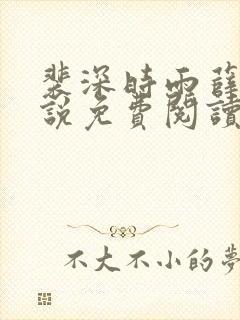 裴深時雨薛
說免費閱讀
不大不小的夢